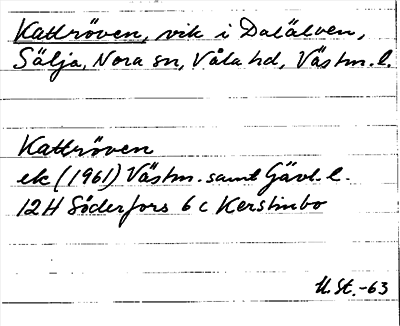 Kattröven, vik i Dalälven,
Sälja, Nora sn, Våla hd, Västm. l.
Kattröven
ek (1961) Västm. samt Gävl. l.
12H Söderfors 6 c Kerstinbo
U. St. -63